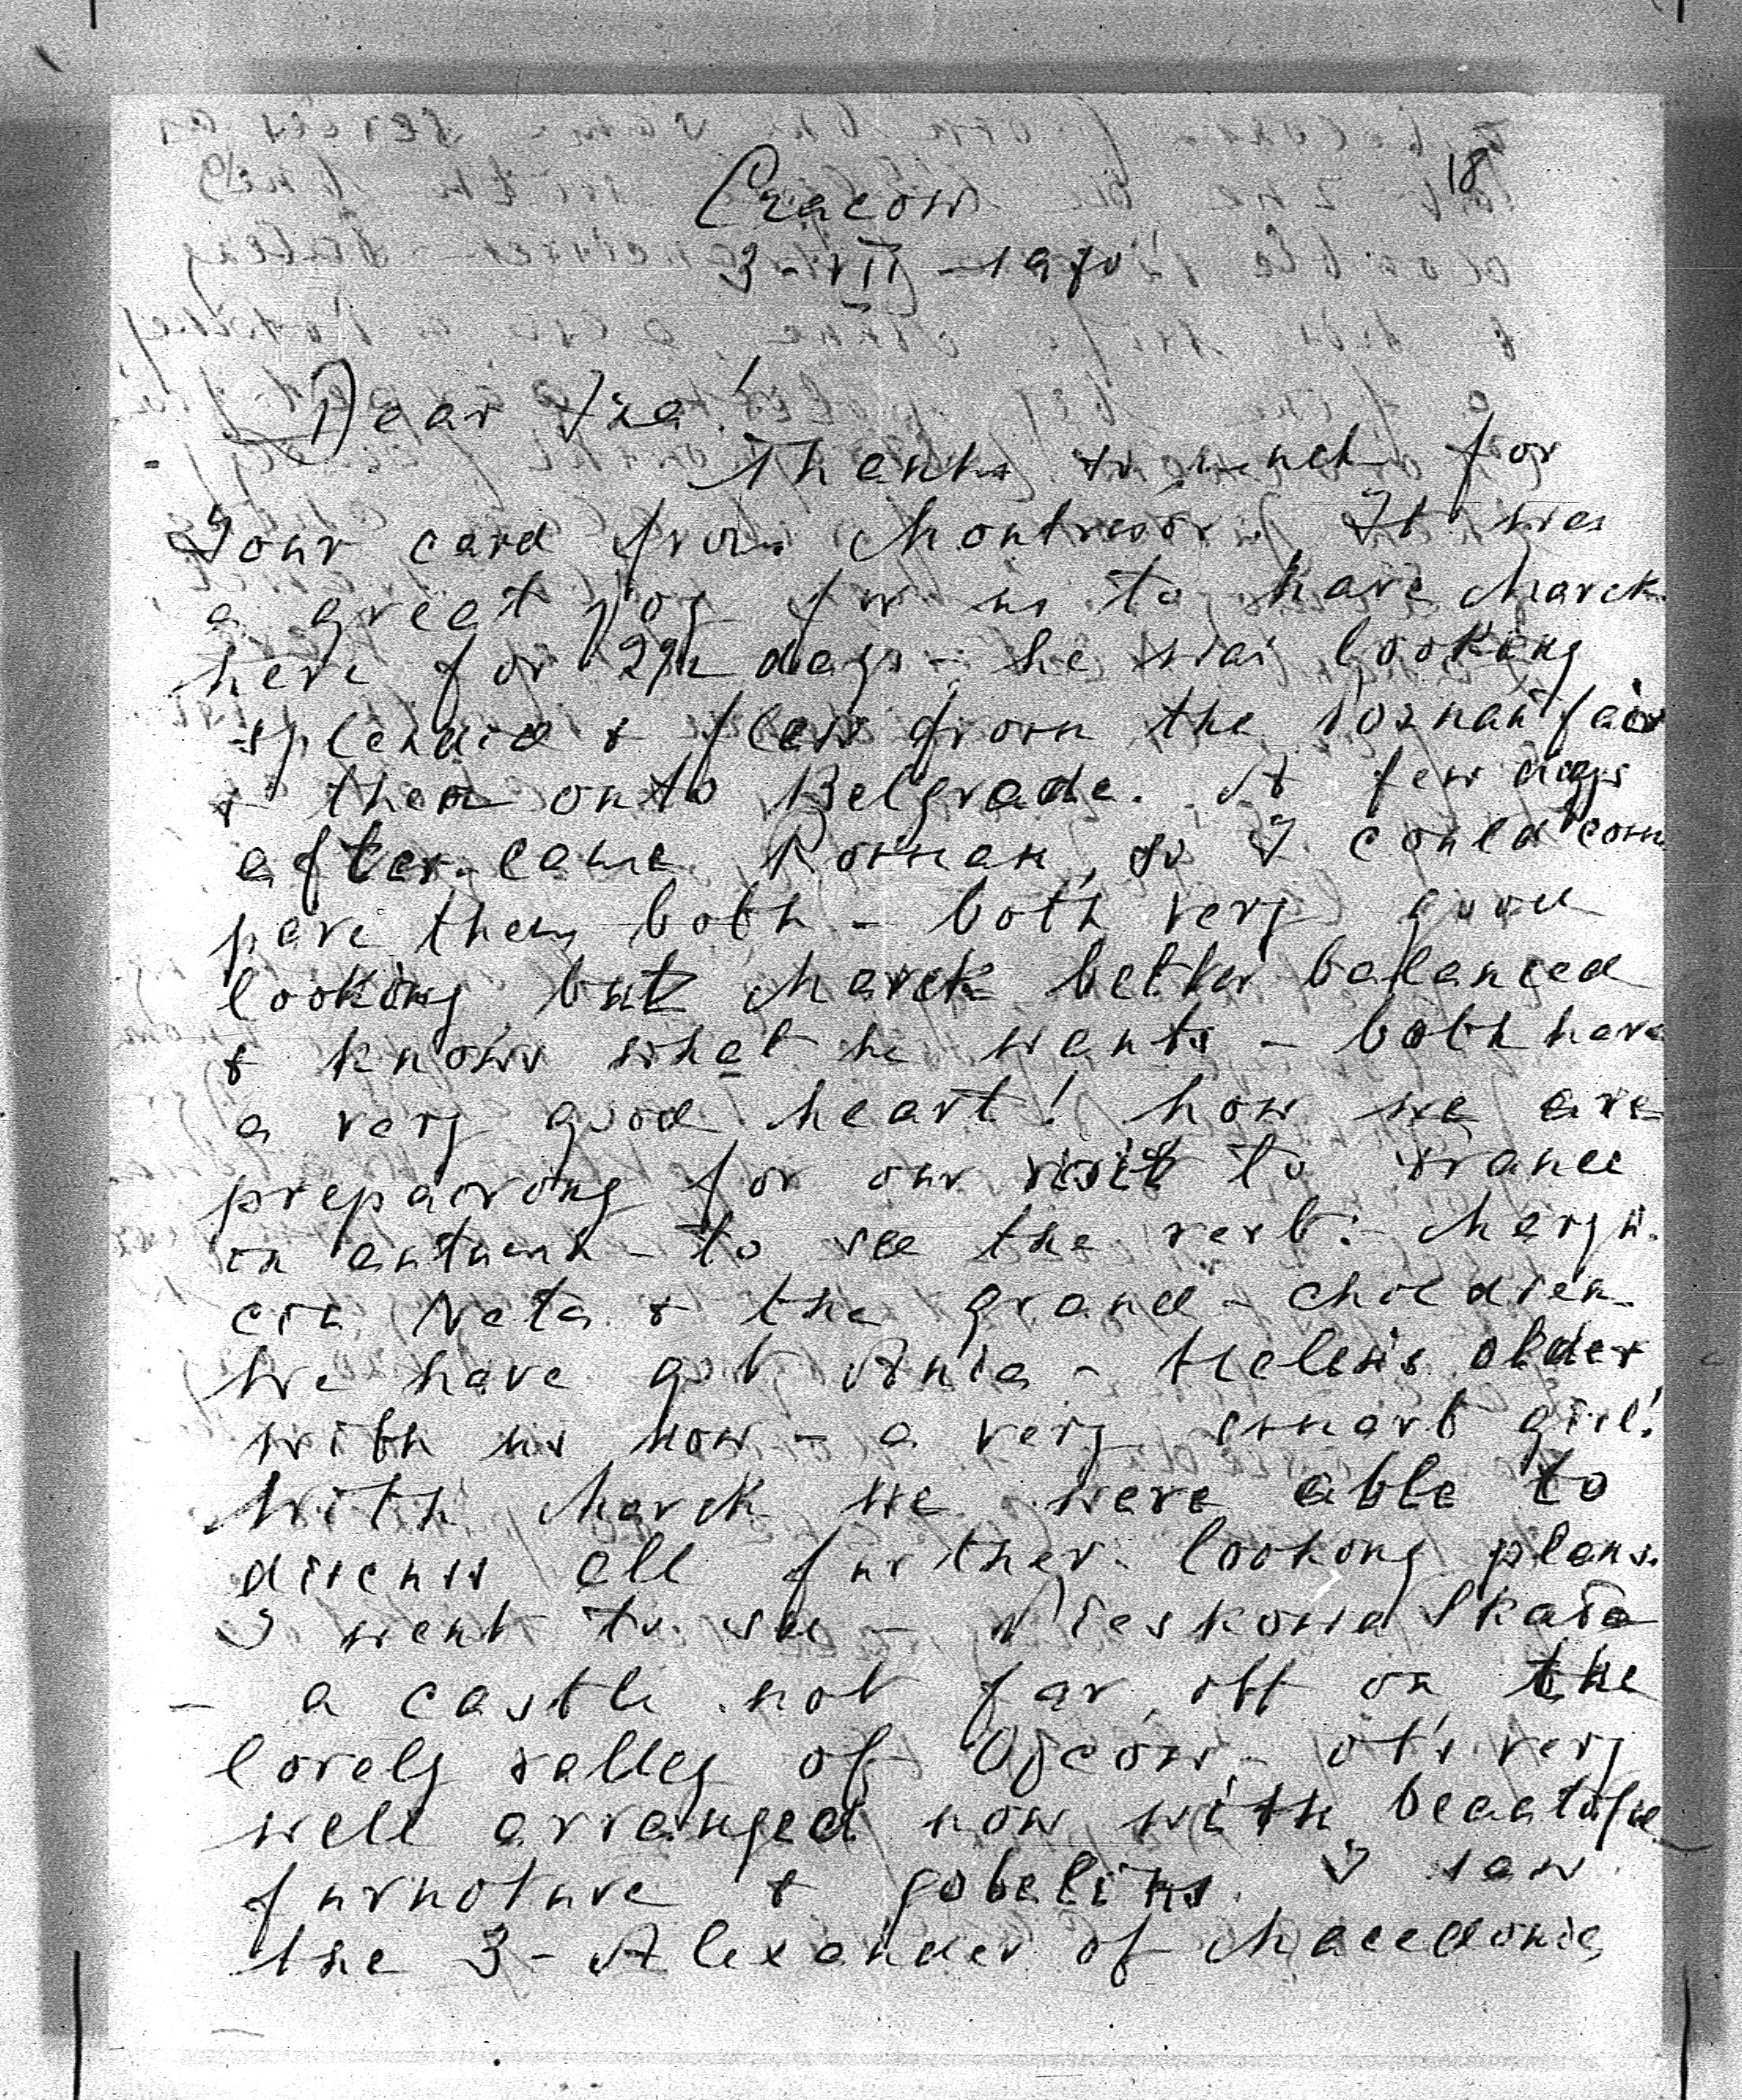 18
Cracow
3-VII-1970
Dear Iza!
Thanks so much for
Your card from Montresor. It was
a great joy for us to have Marek
here for 2½ days - he was looking
splendid & flew from the Poznań fair
& then onto Belgrade. A few days
after came Roman, so I could com
pare them both - both very good
looking but Marek better balanced
& knows what he wants - both have
a very good heart! Now we are
preparong for our visit to France
in autumn - to see the rest: Marys.
cia Neta & the grand-children.
We have got Ania - Helen's older
with us now - a very smart girl!
With Marek we were able to
discuss all further looking plans.
I went to see - Pieskowa Skała
- a castle not far off on the
lovely valley of Ojców - it's very
well arranged now with beautifu
furnoture & gobelins. I saw
the 3 - Alexander of Macedonia